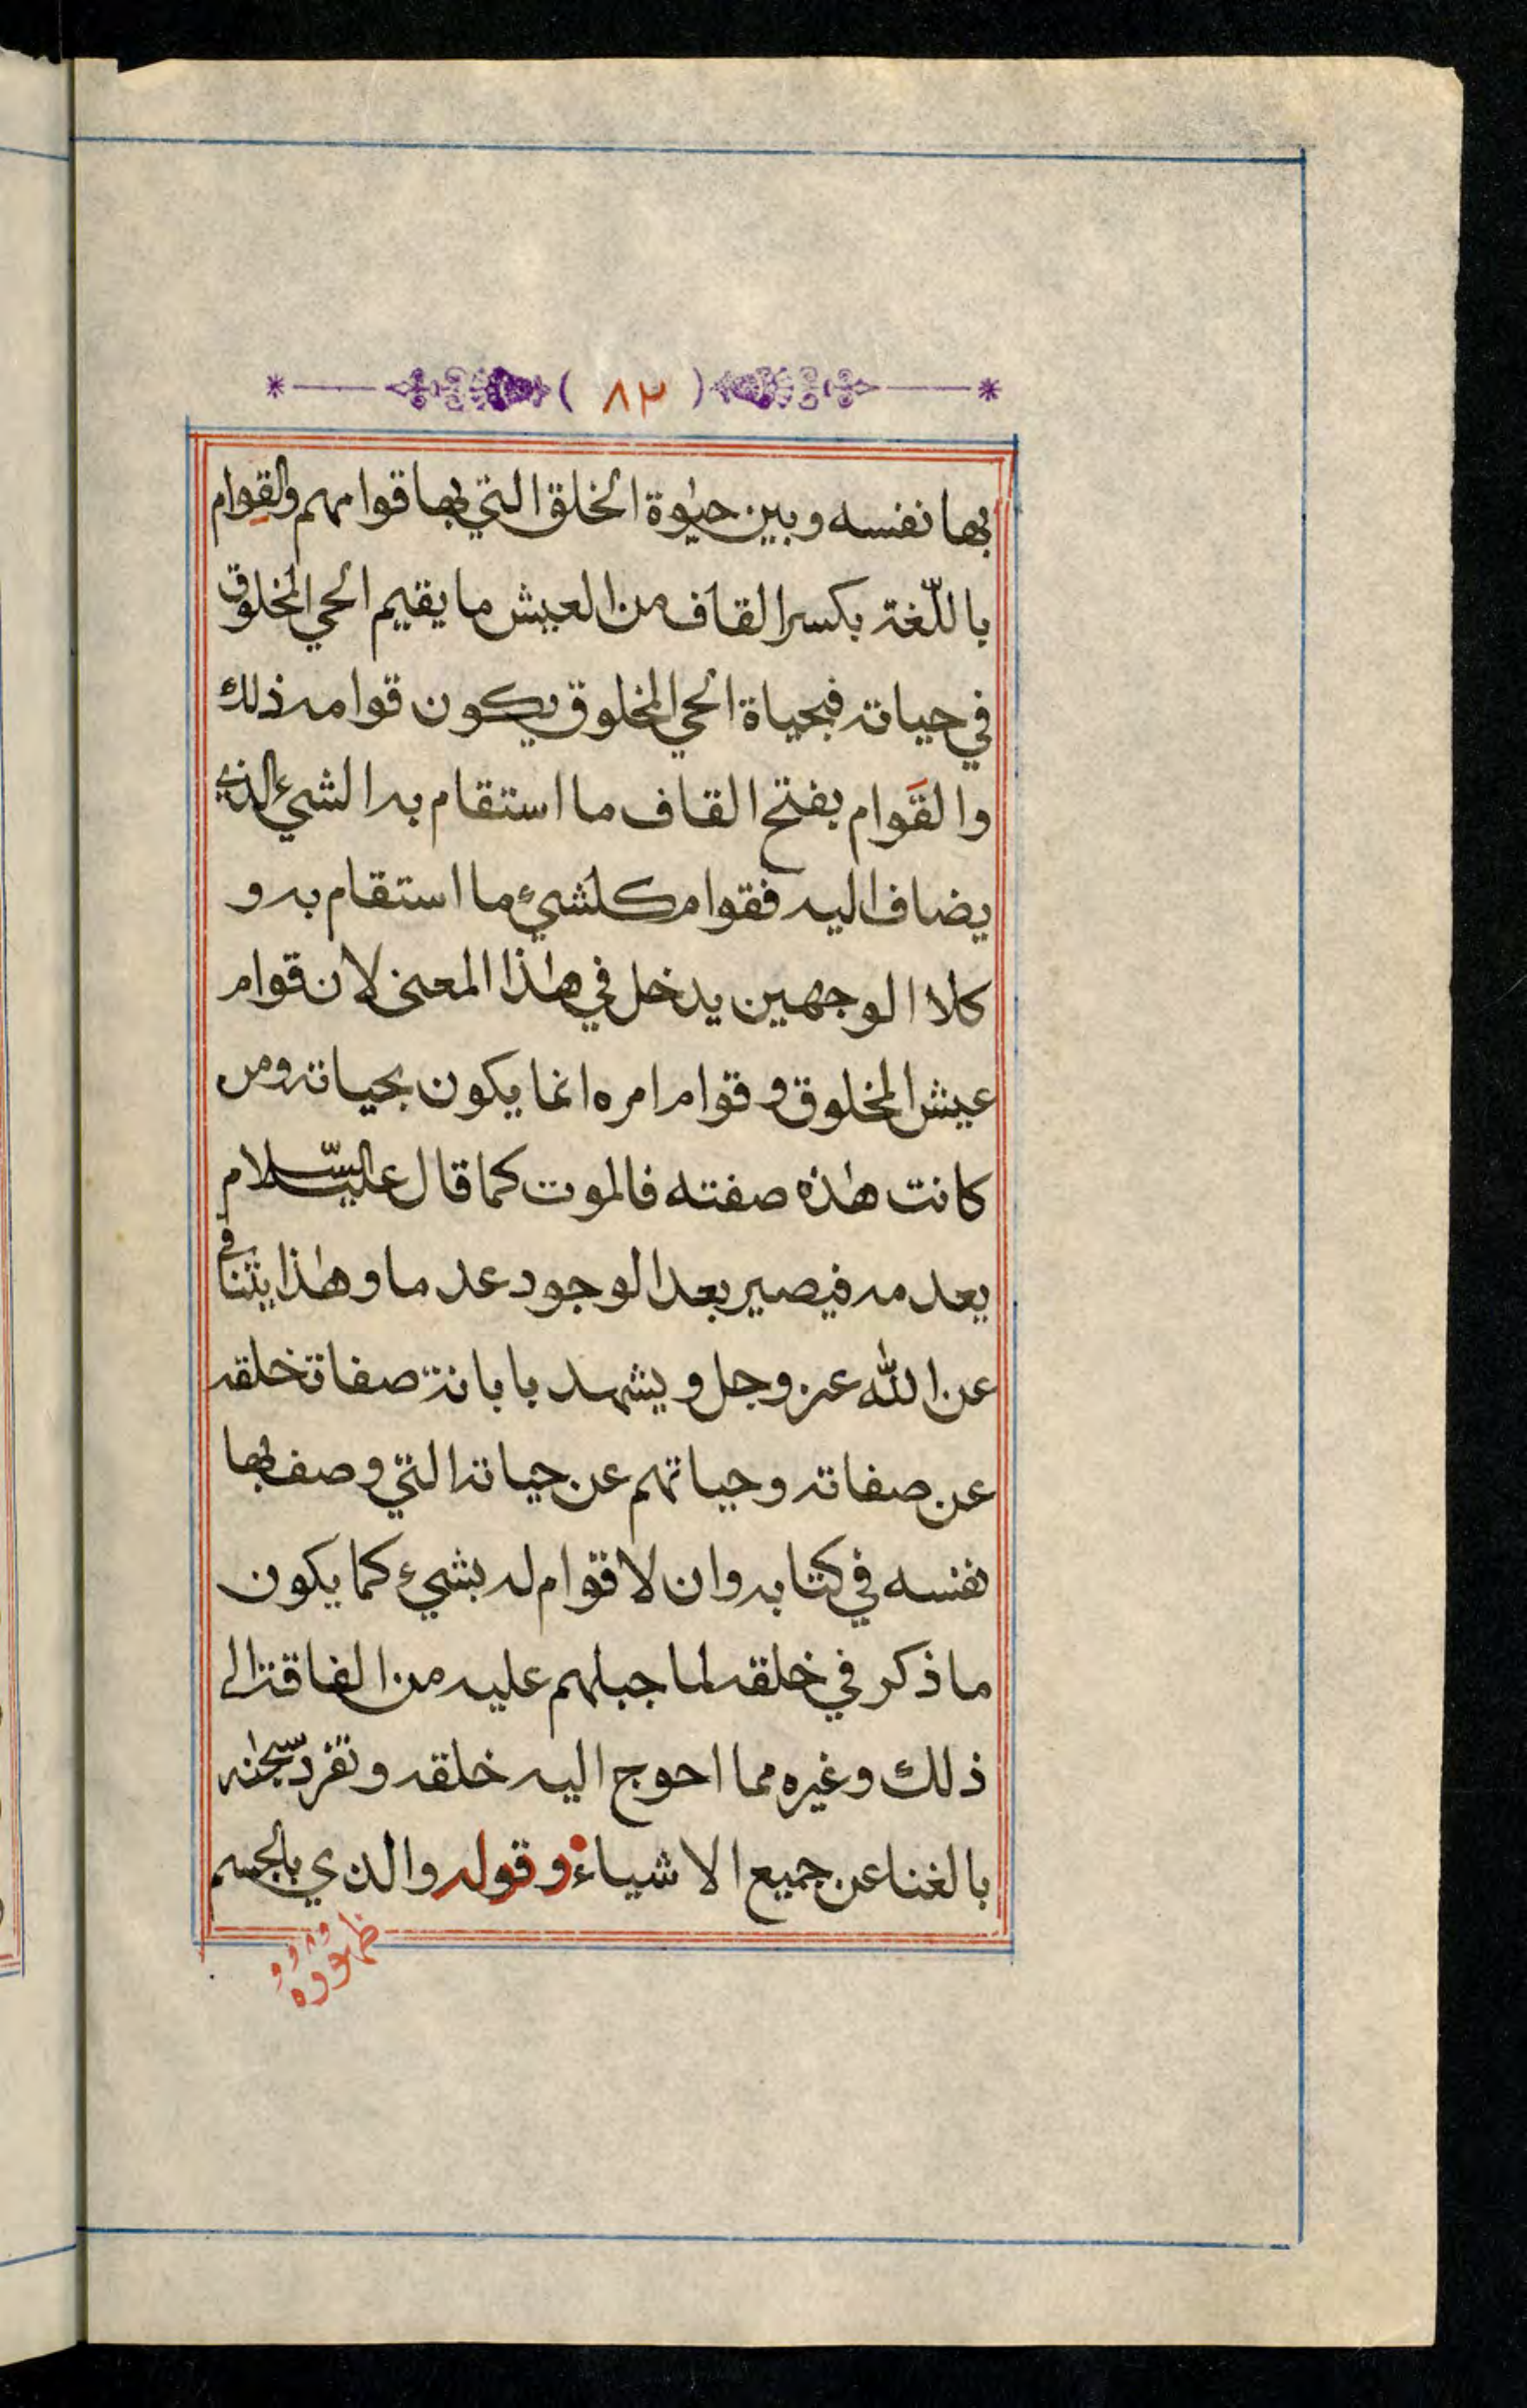 ( ٨٢ )
بها نفسه وبين حيٰوة الخلق التي بها قوامهم والقِوام
باللّغة بكسر القاف من العيش ما يقيم الحي المخلوق
في حياته فبحياة الحي المخلوق يكون قوامه ذلك
والقَوام بفتح القاف ما استقام به الشيء الذي
يضاف اليه فقوام كلشيء ما استقام به و
كلا الوجهين يدخل في هٰذا المعنى لان قوام
عيش المخلوق وقوام امره انما يكون بحياته ومن
كانت هٰذه صفته فالموت كما قال عليه السّلام
يعدمه فيصير بعد الوجود عدما وهٰذا يتنافى
عن الله عز وجل ويشهد بابانة صفات خلقه
عن صفاته وحياتهم عن حياته التي وصف بها
نفسه في كتابه وان لا قوام له بشيء كما يكون
ما ذكر في خلقه لما جبلهم عليه من الفاقة الى
ذلك وغيره مما احوج اليه خلقه وتفرّد سبحٰنه
بالغنا عن جميع الاشياء وقوله والذي بالجسم
ظهوره